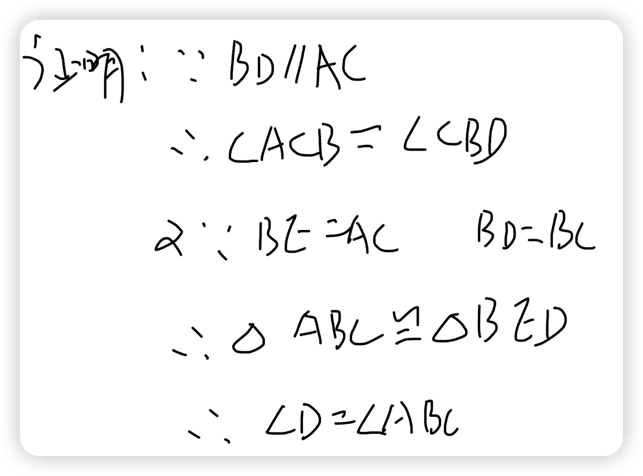 证明：∵ BD∥AC
∴ ∠ACB = ∠CBD
又∵ BE = AC BD = BC
∴ △ABC ≌ △BED
∴ ∠D = ∠ABC